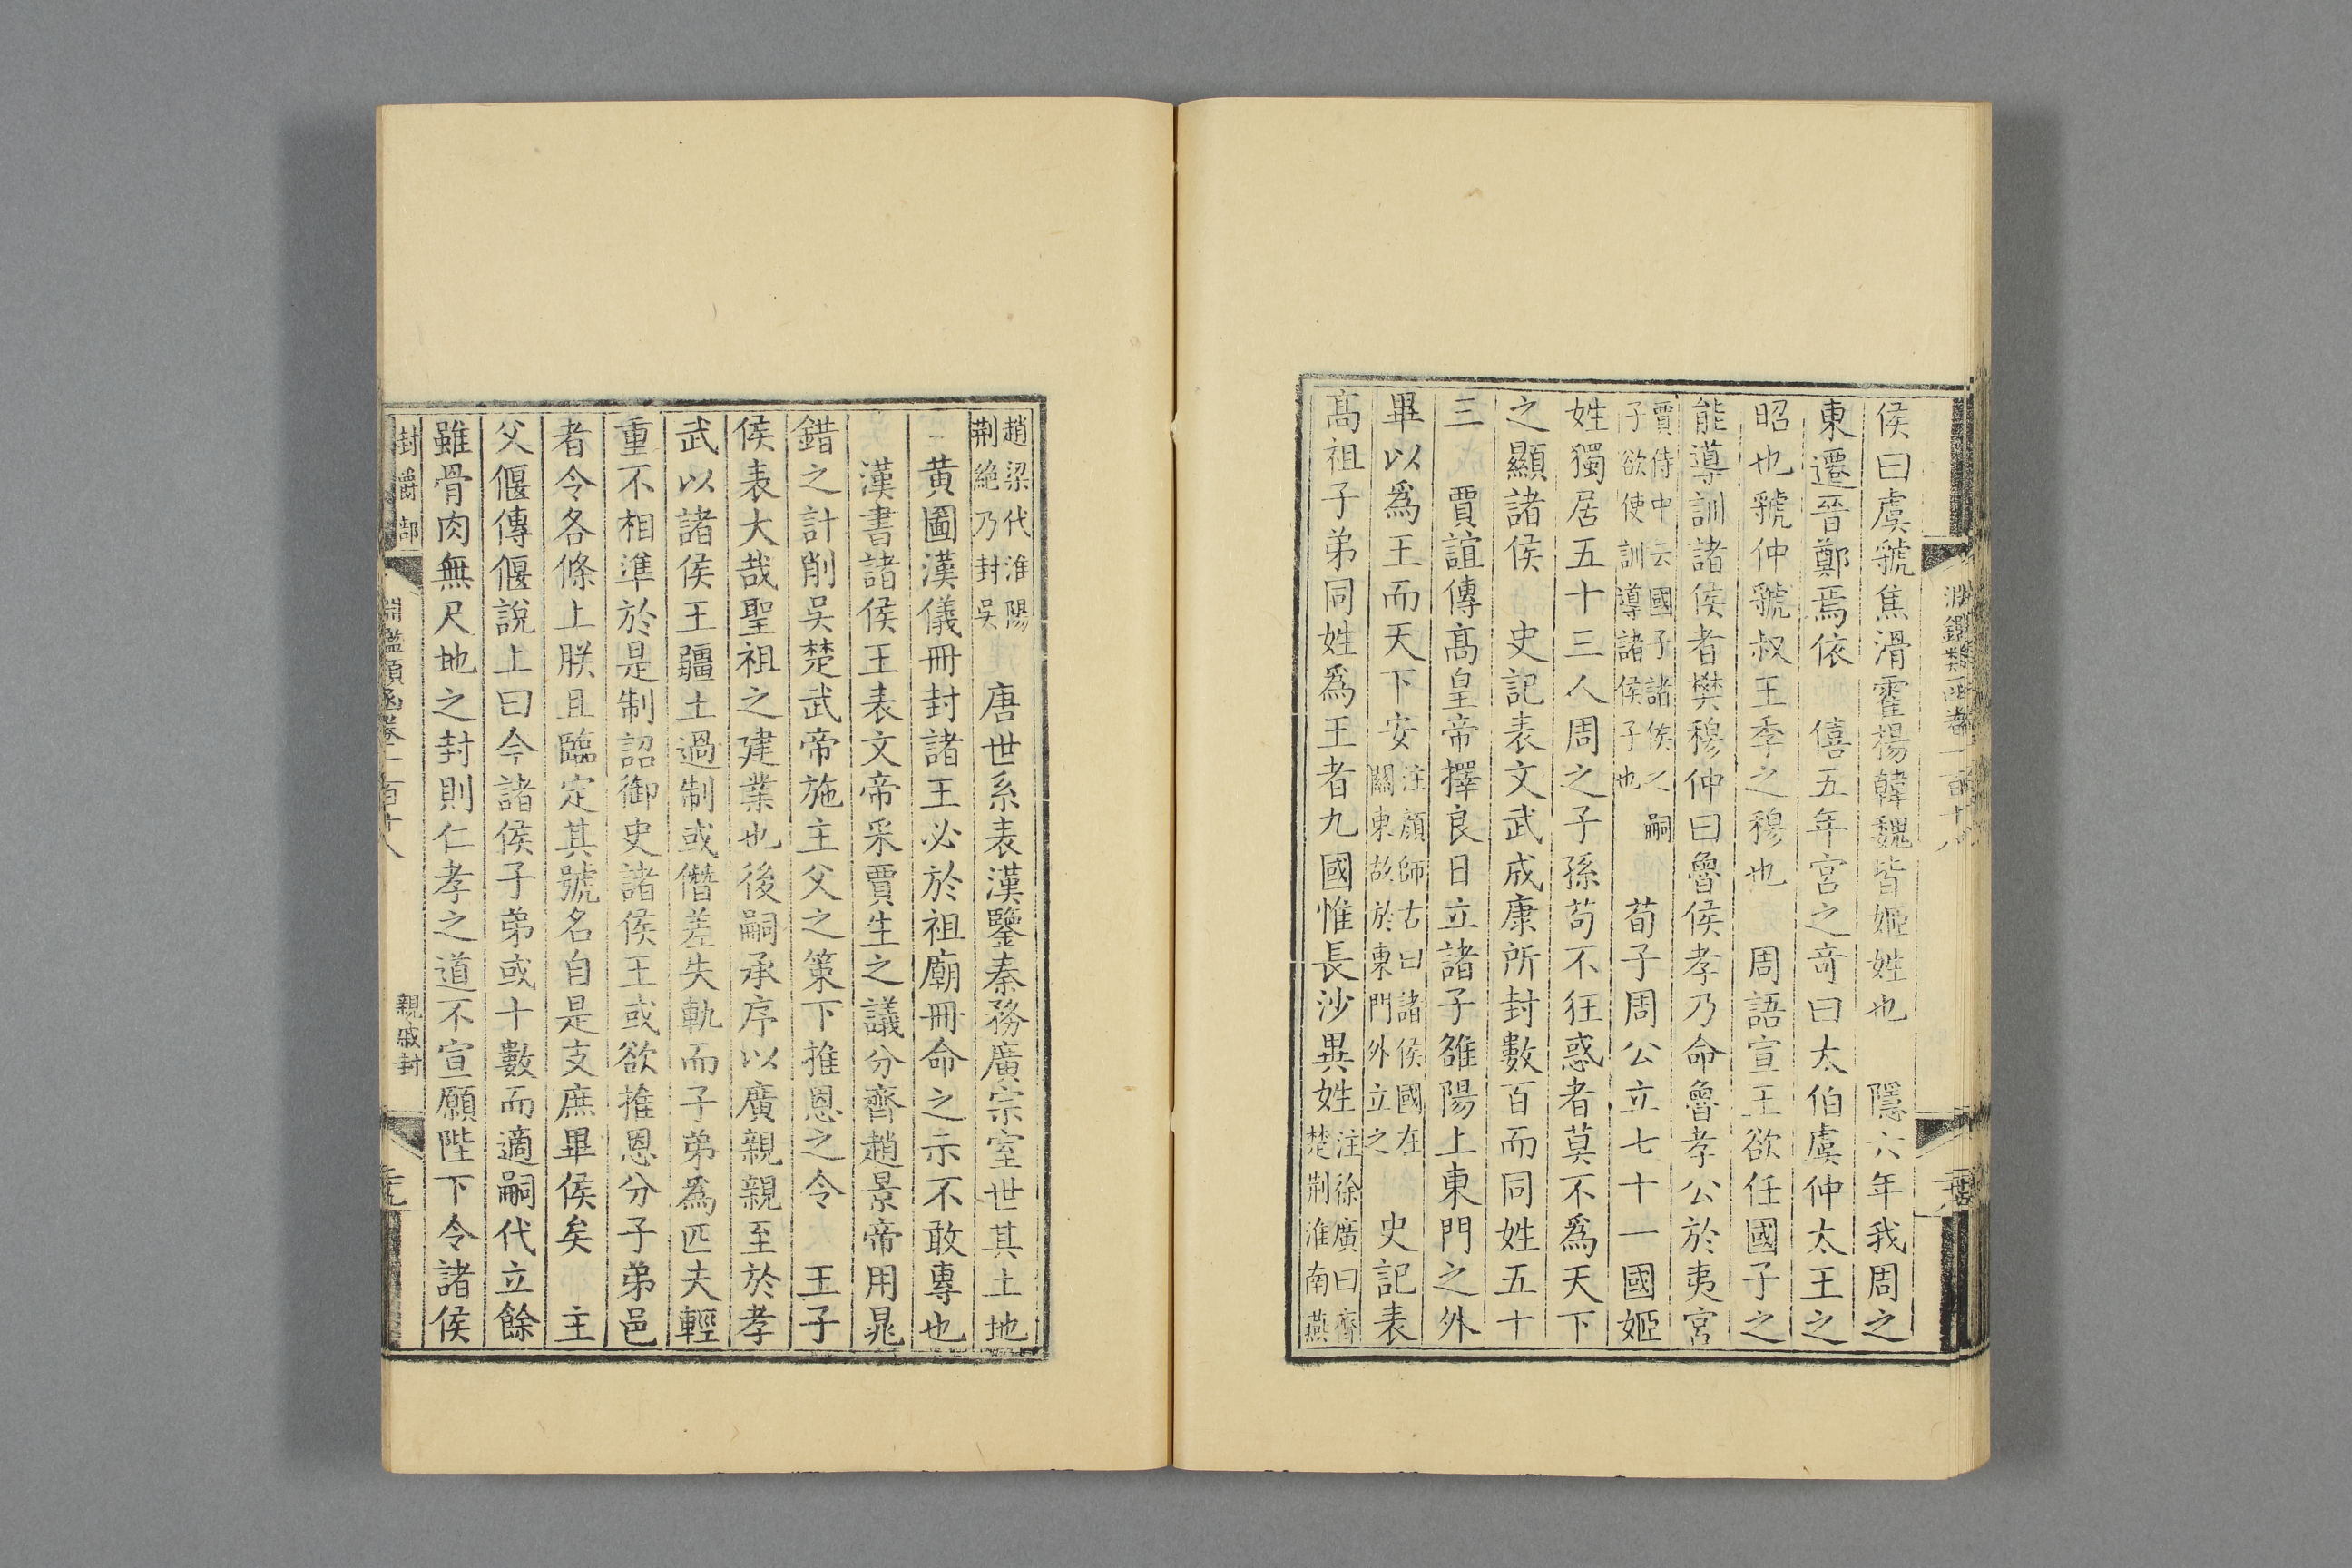 侯曰虞虢焦滑霍揚韓魏皆姬姓也　隱六年我周之
東遷晉鄭焉依　僖五年宮之奇曰太伯虞仲太王之
昭也虢仲虢叔王季之穆也　周語宣王欲任國子之
能導訓諸侯者樊穆仲曰魯侯孝乃命魯孝公於夷宮
賈侍中云國子諸侯之嗣
子欲使訓導諸侯子也
荀子周公立七十一國姬
姓獨居五十三人周之子孫苟不狂惑者莫不爲天下
之顯諸侯　史記表文武成康所封數百而同姓五十
三　賈誼傳高皇帝擇良日立諸子雒陽上東門之外
畢以爲王而天下安
注顏師古曰諸侯國在
關東故於東門外立之
史記表
高祖子弟同姓爲王者九國惟長沙異姓
注徐廣曰齊
楚荆淮南燕
趙梁代淮陽
荆絶乃封吳
唐世系表漢鑒秦務廣宗室世其土地
黃圖漢儀冊封諸王必於祖廟冊命之示不敢專也
漢書諸侯王表文帝采賈生之議分齊趙景帝用晁
錯之計削吳楚武帝施主父之策下推恩之令　王子
侯表大哉聖祖之建業也後嗣承序以廣親親至於孝
武以諸侯王疆土過制或僭差失軌而子弟爲匹夫輕
重不相準於是制詔御史諸侯王或欲推恩分子弟邑
者令各條上朕且臨定其號名自是支庶畢侯矣　主
父偃傳偃說上曰今諸侯子弟或十數而適嗣代立餘
雖骨肉無尺地之封則仁孝之道不宣願陛下令諸侯
封爵部
淵鑑類函卷一百十八
親戚封